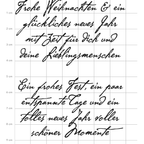 Frohe Weihnachten & ein
glückliches neues Jahr
mit Zeit für dich und
deine Lieblingsmenschen
Ein frohes Fest, ein paar
entspannte Tage und ein
tolles neues Jahr voller
schöner Momente